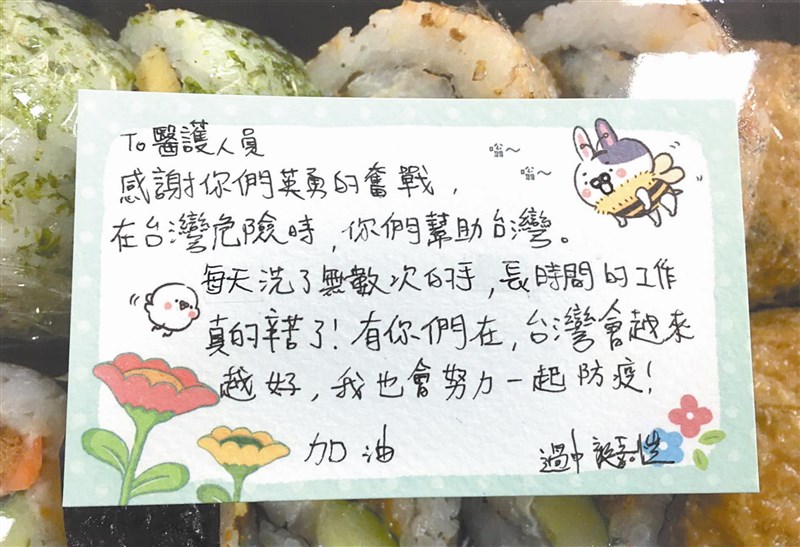 To醫護人員
感謝你們英勇的奮戰,
在台灣危險時,你們幫助台灣。
嗡~
嗡~
每天洗了無數次的手,長時間的工作
真的辛苦了!有你們在,台灣會越來
越好,我也會努力一起防疫!
加油